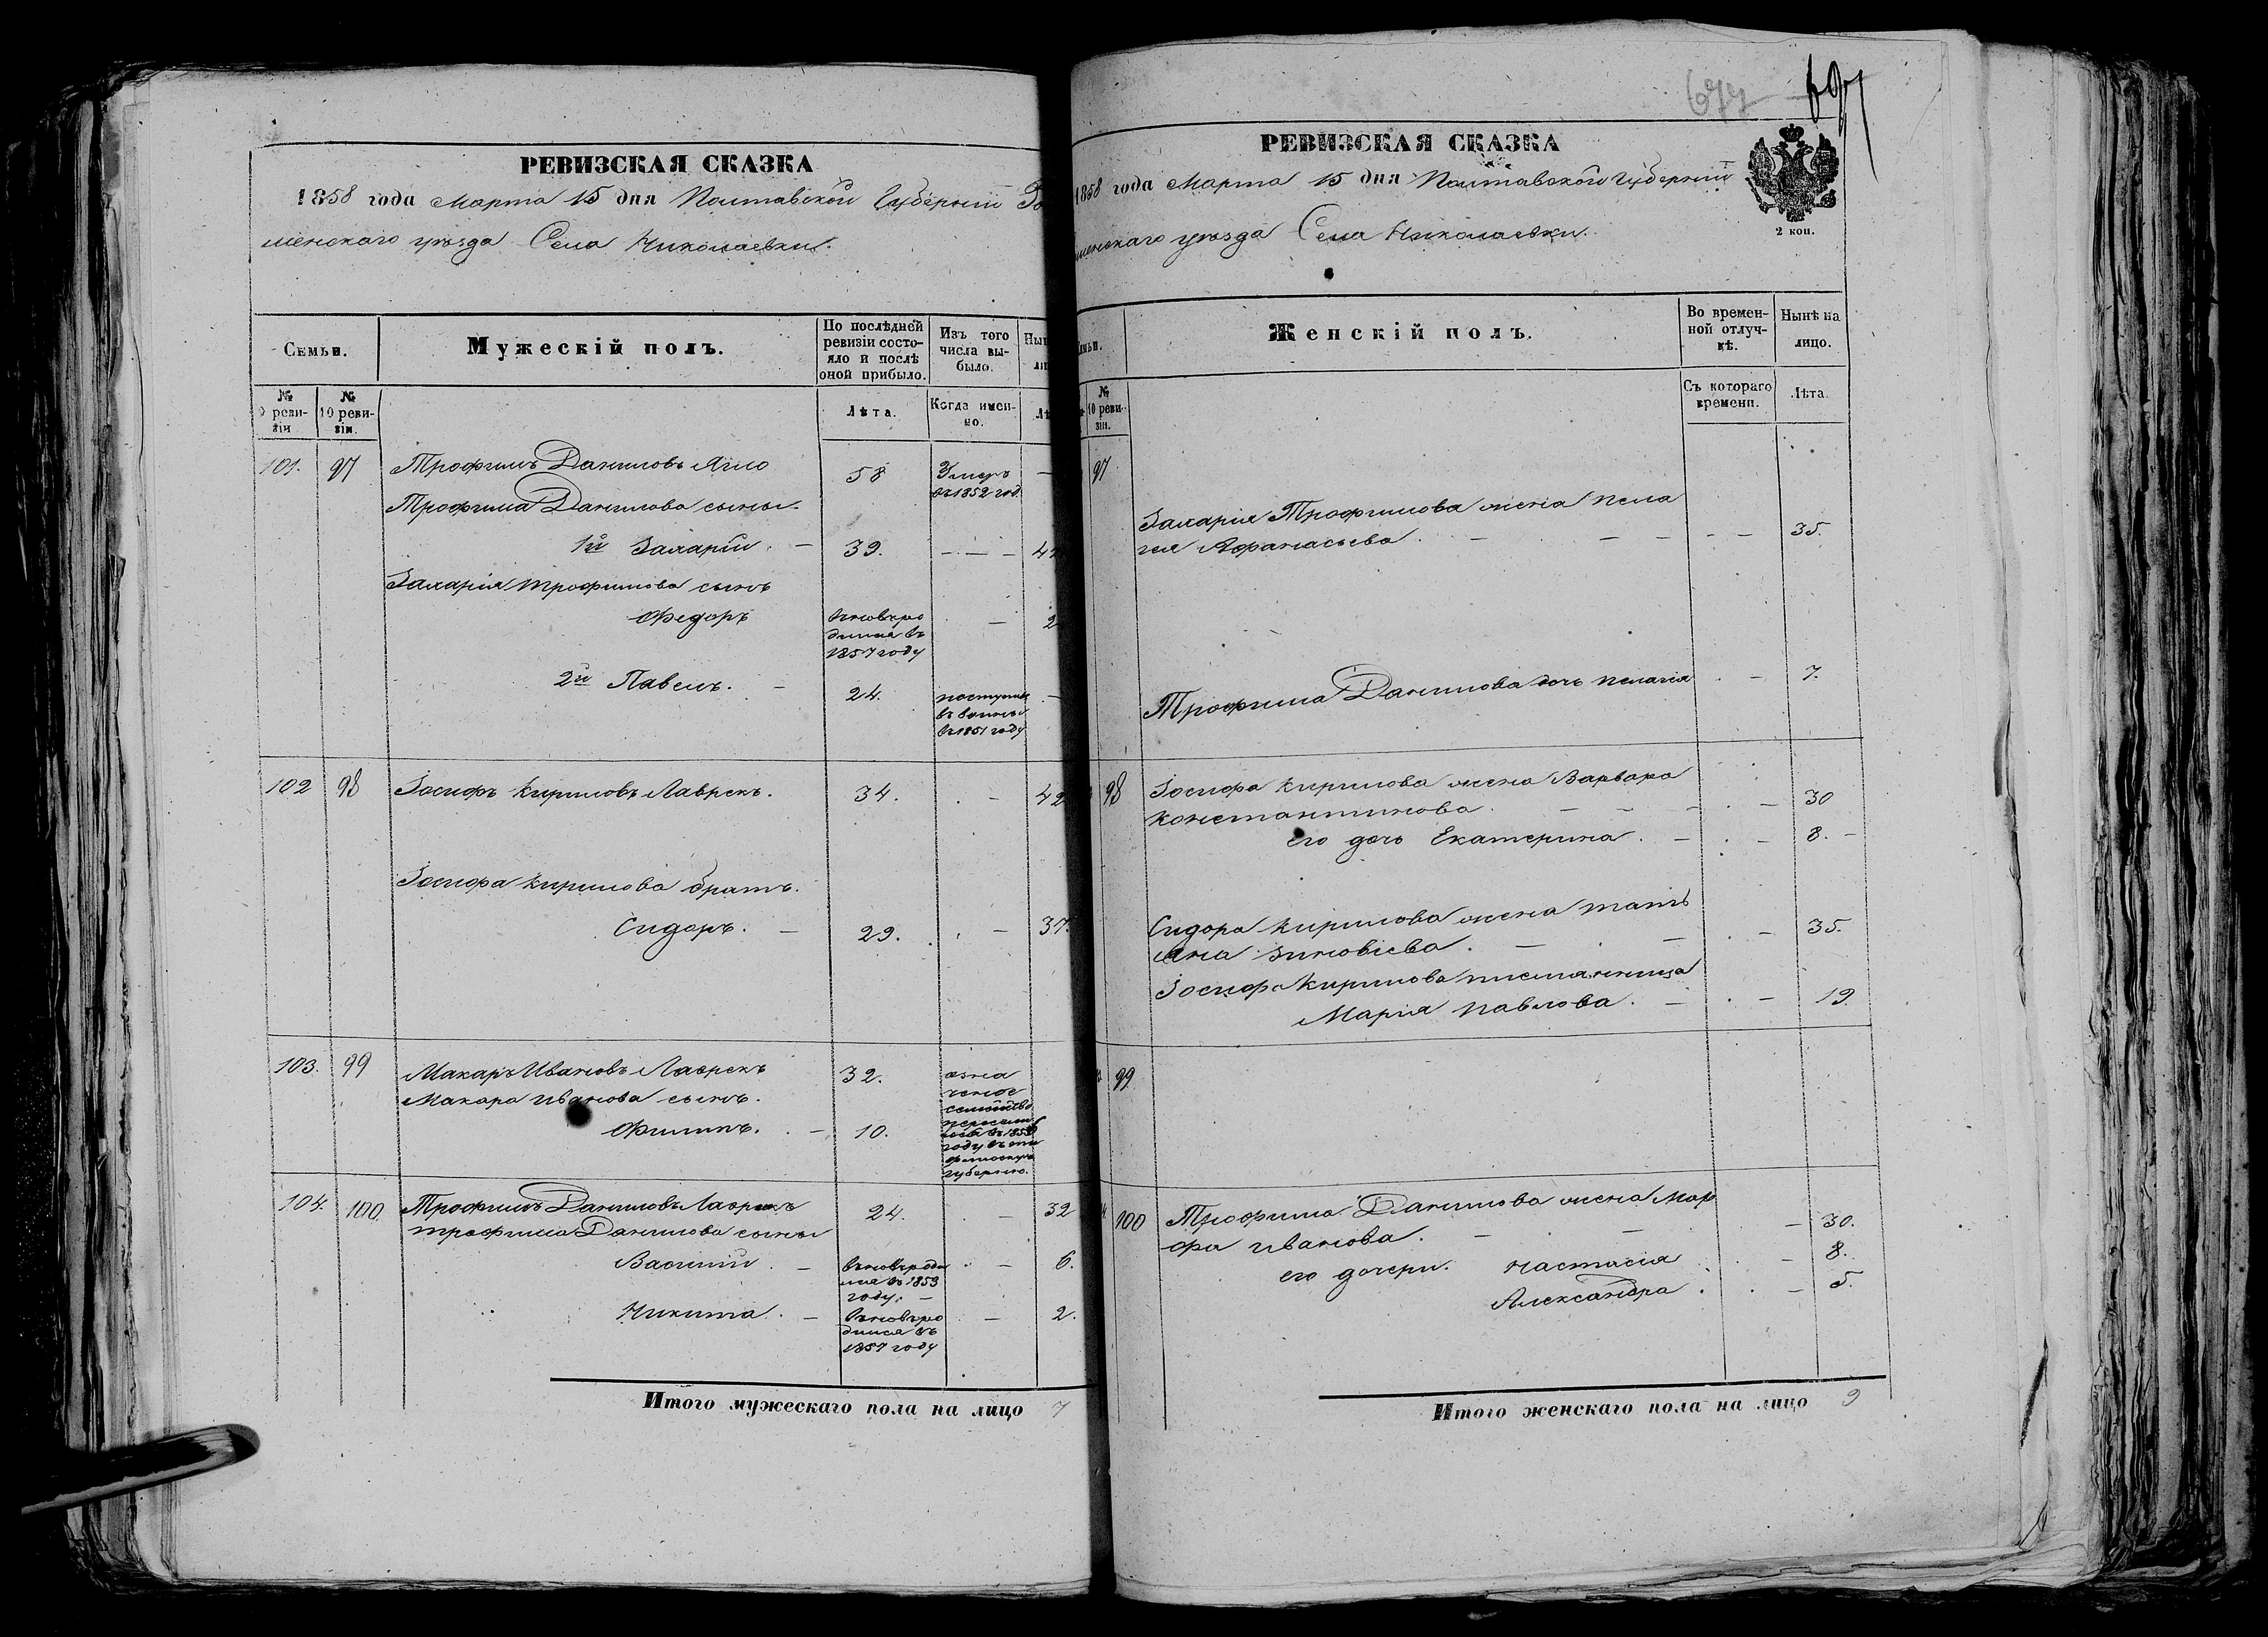 РЕВИЗСКАЯ СКАЗКА
1858 года Марта 15 дня Полтавской Губернии Ро
менскаго уѣзда Села Николаевки.
Семьи.
Мужескій полъ.
По послѣдней
ревизіи состо-
яло и послѣ
оной прибыло.
Изъ того
числа вы-
было.
№
9 реви-
зіи
№
10 реви-
зіи.
Лѣта.
Когда имен-
но.
101. 97 Трофимъ Даниловъ Ягло 58 Умеръ
въ 1852 год.
Трофима Данилова сыны.
1й Захарій. 39. 4
Захарія Трофимова сынъ
Федоръ вновьро
дился въ
1857 году 2
2й Павелъ. 24. поступил
въ
въ 1851 году
102 98 Іосифъ Кириловъ Лаврекъ. 34. 42
Іосифа Кирилова братъ.
Сидоръ. 29. 37.
103. 99 Макаръ Ивановъ Лаврекъ 32. озна
ченое
семейство
Макара Иванова сынъ.
Филипъ. 10. переселил
ось въ 185
году въ
губернію.
104. 100. Трофимъ Даниловъ Лаврекъ 24. 32
Трофима Данилова сыны
Василій. вновьроди
лся въ 1853
году. 6.
Никита. вновьро
дился въ
1857 году 2.
Итого мужескаго пола на лицо 7
677
РЕВИЗСКАЯ СКАЗКА
1858 года Марта 15 дня Полтавской Губерніи
менскаго уѣзда Села Николаевки.
2 коп.
Женскій полъ.
Во времен-
ной отлуч-
кѣ.
Нынѣ на
лицо.
№
10 реви-
зіи.
Съ котораго
времени.
Лѣта.
97
Захарія Трофимова жена Пела
гея Афанасьева. 35.
Трофима Данилова дочь Пелагія 7.
98 Іосифа Кирилова жена Варвара
Константинова. 30
его дочь Екатерина. 8.
Сидора Кирилова жена Татъ
яна Зиновіева. 35.
Іосифа Кирилова племянница
Марія Павлова. 19.
99
100 Трофима Данилова жена Мар
фа Иванова. 30.
его дочери. Настасія 8.
Александра. 5.
Итого женскаго пола на лицо 9